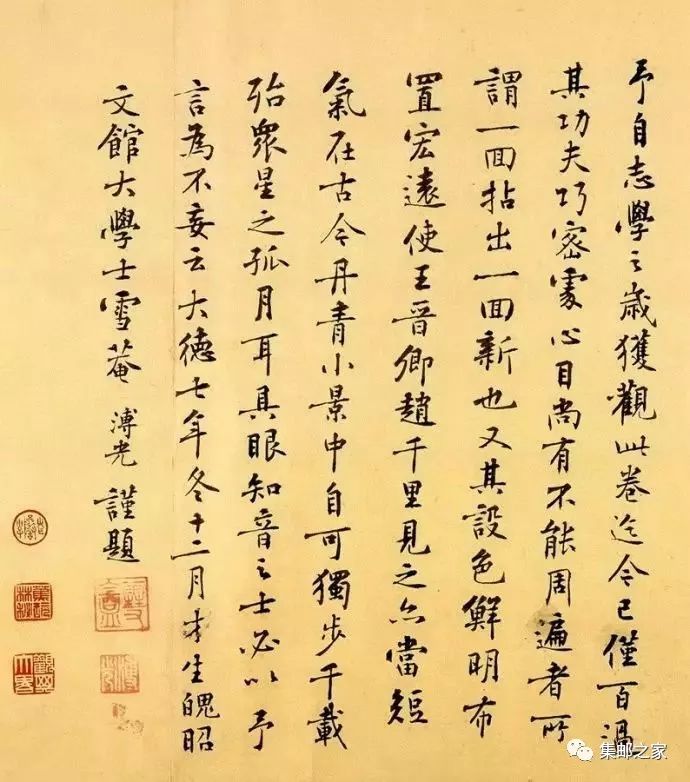 予自志學之歲獲觀此卷迄今已僅百過
其功夫巧密處心目尚有不能周遍者所
謂一回拈出一回新也又其設色鮮明布
置宏遠使王晉卿趙千里見之亦當短
氣在古今丹青小景中自可獨步千載
殆衆星之孤月耳具眼知音之士必以予
言為不妄云大德七年冬十二月才生魄昭
文館大學士雪菴溥光謹題
集邮之家